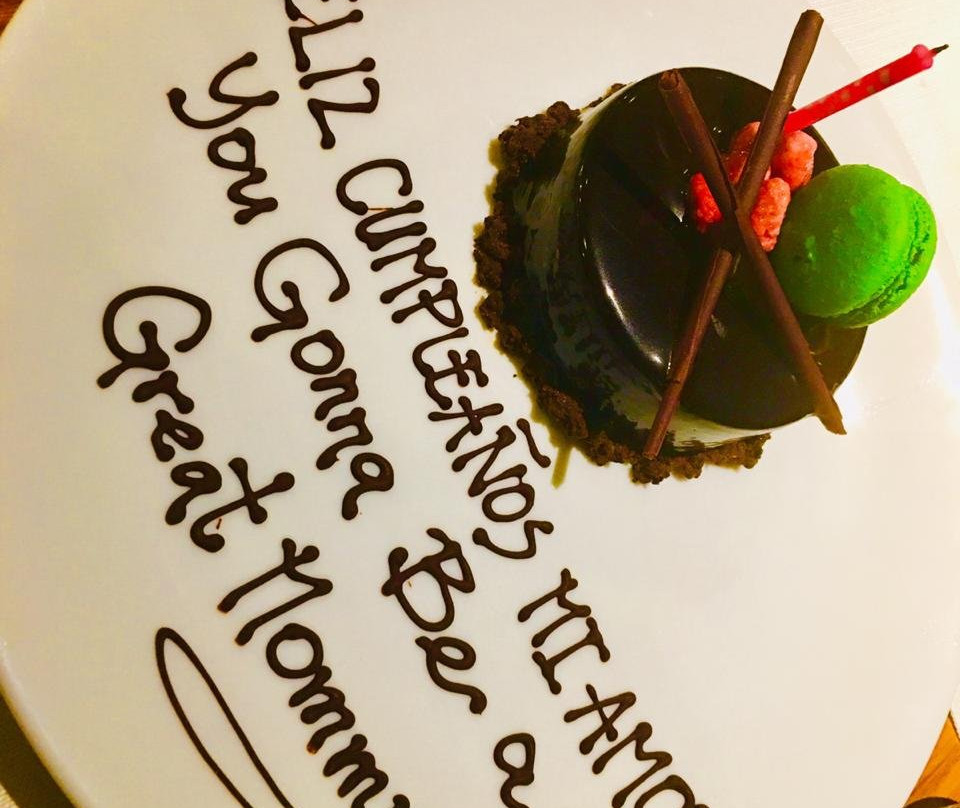 ELIZ CUMPLEAÑOS MI AMO
You Gonna Be a
Great Mommy